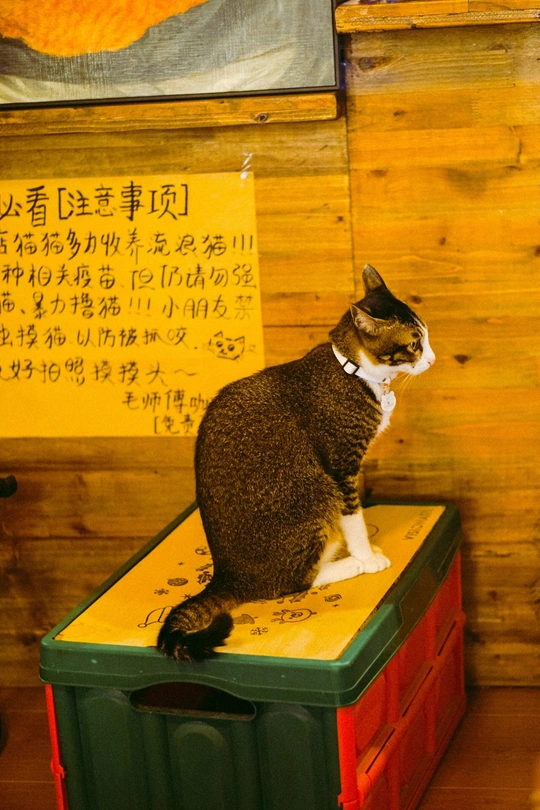 必看[注意事项]
店猫猫多为收养流浪猫!!!
种相关疫苗.但仍请勿强
猫、暴力撸猫!!! 小朋友禁
独摸猫.以防被抓咬.
好拍照摸摸头~
毛师傅咖
[免责